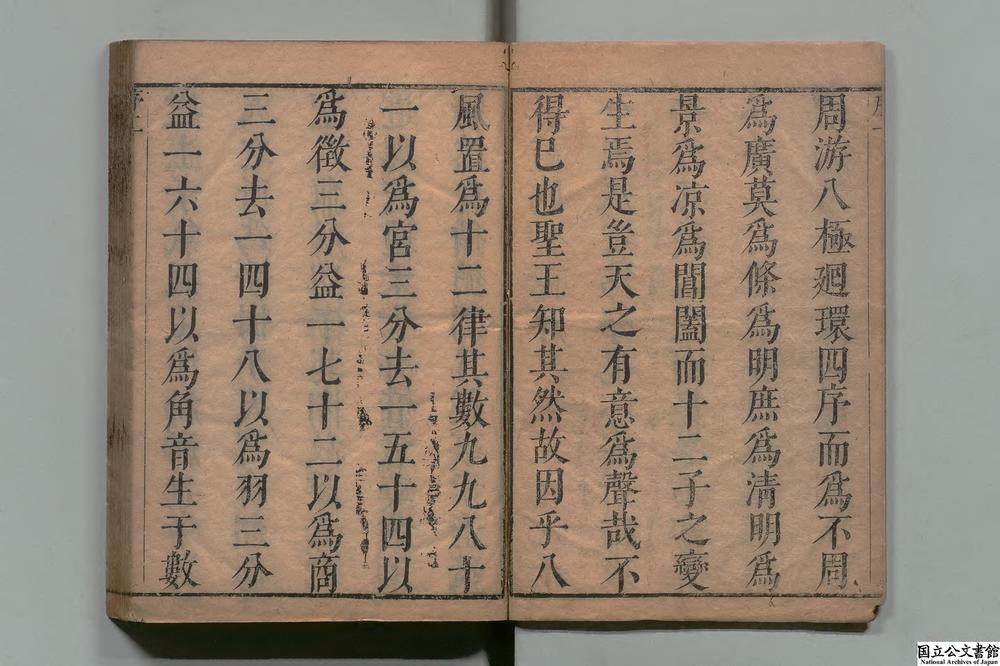 周游八極廻環四序而爲不周
爲廣莫爲條爲明庶爲清明爲
景爲凉爲閶闔而十二子之變
生焉是豈天之有意爲聲哉不
得已也聖王知其然故因乎八
風置爲十二律其數九九八十
一以爲宮三分去一五十四以
爲徵三分益一七十二以爲商
三分去一四十八以爲羽三分
益一六十四以爲角音生于數
国立公文書館
National Archives of Japan